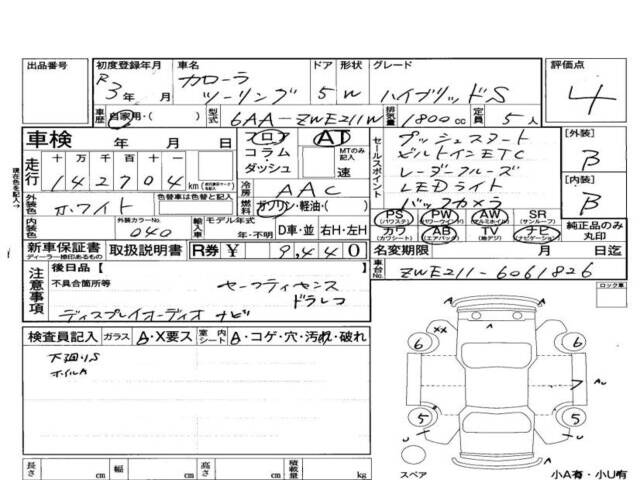 出品番号 初度登録年月 車名 ドア 形状 グレード 評価点
R3年 月 カローラ ツーリング 5 W ハイブリッドS 4
車歴 自家用・( ) 型式 6AA-ZWE211W 排気量 1800cc 定員 5人
車検 年 月 日 フロア コラム・ダッシュ AT MTのみ記入 速
セールスポイント プッシュスタート
ビルトインETC
レーダークルーズ
LEDライト
バックカメラ
[外装] B
[内装] B
現在色を記入→
走行 十 万 千 百 十 1
142704 km
冷房 AAC
外装色 ホワイト 色替車は色替と記入 燃料 ガソリン・軽油・( )
PS (パワステ) PW (パワーウインド) AW (アルミホイル) SR (サンルーフ) 純正品のみ丸印
カワ (カワシート) AB (エアバック) TV (地デジ) ナビ (ナビゲーション)
内装色 外装カラーNo. 040 輸入車 モデル年式 年・不明 D車・並 右H・左H
新車保証書 ディーラー捺印あるもの 取扱説明書 R券 ¥ 9,440 名変期限 月 日迄
車台No. ZWE211-6061826
注意事項 後日品 [
不具合箇所等 セーフティセンス
ドラレコ
ディスプレイオーディオ ナビ
ロック車
検査員記入 ガラス A・X要ス 室内シート A・コゲ・穴・汚れ・破れ
下廻りS
ホイルA
A
XX
6 6
A
A U
7
5 5
A
スペア 小A有・小U有
長さ cm 幅 cm 高さ cm 積載量 kg